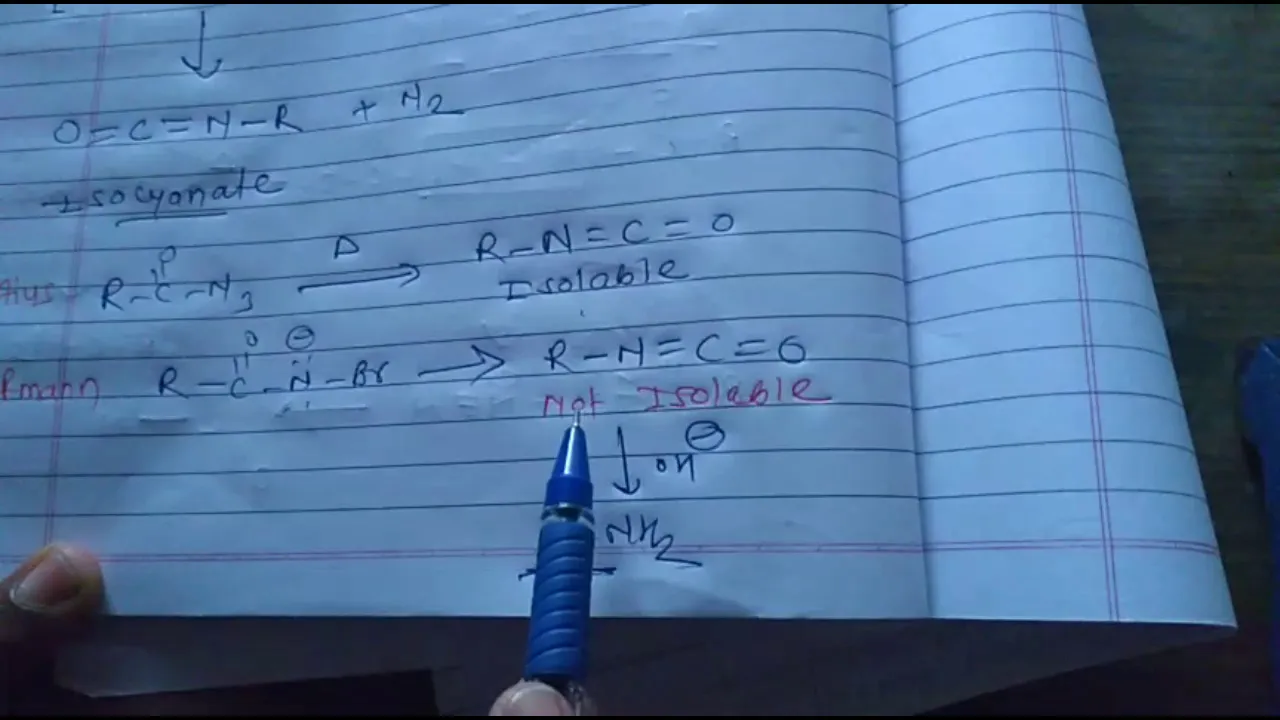 O=C=N-R + N2
Isocyanate
O
Δ
R-C-N3 R-N=C=O
Isolable
O ⊖
R-C-N-Br → R-N=C=O
Not Isolable
↓ OH⊖
NH2